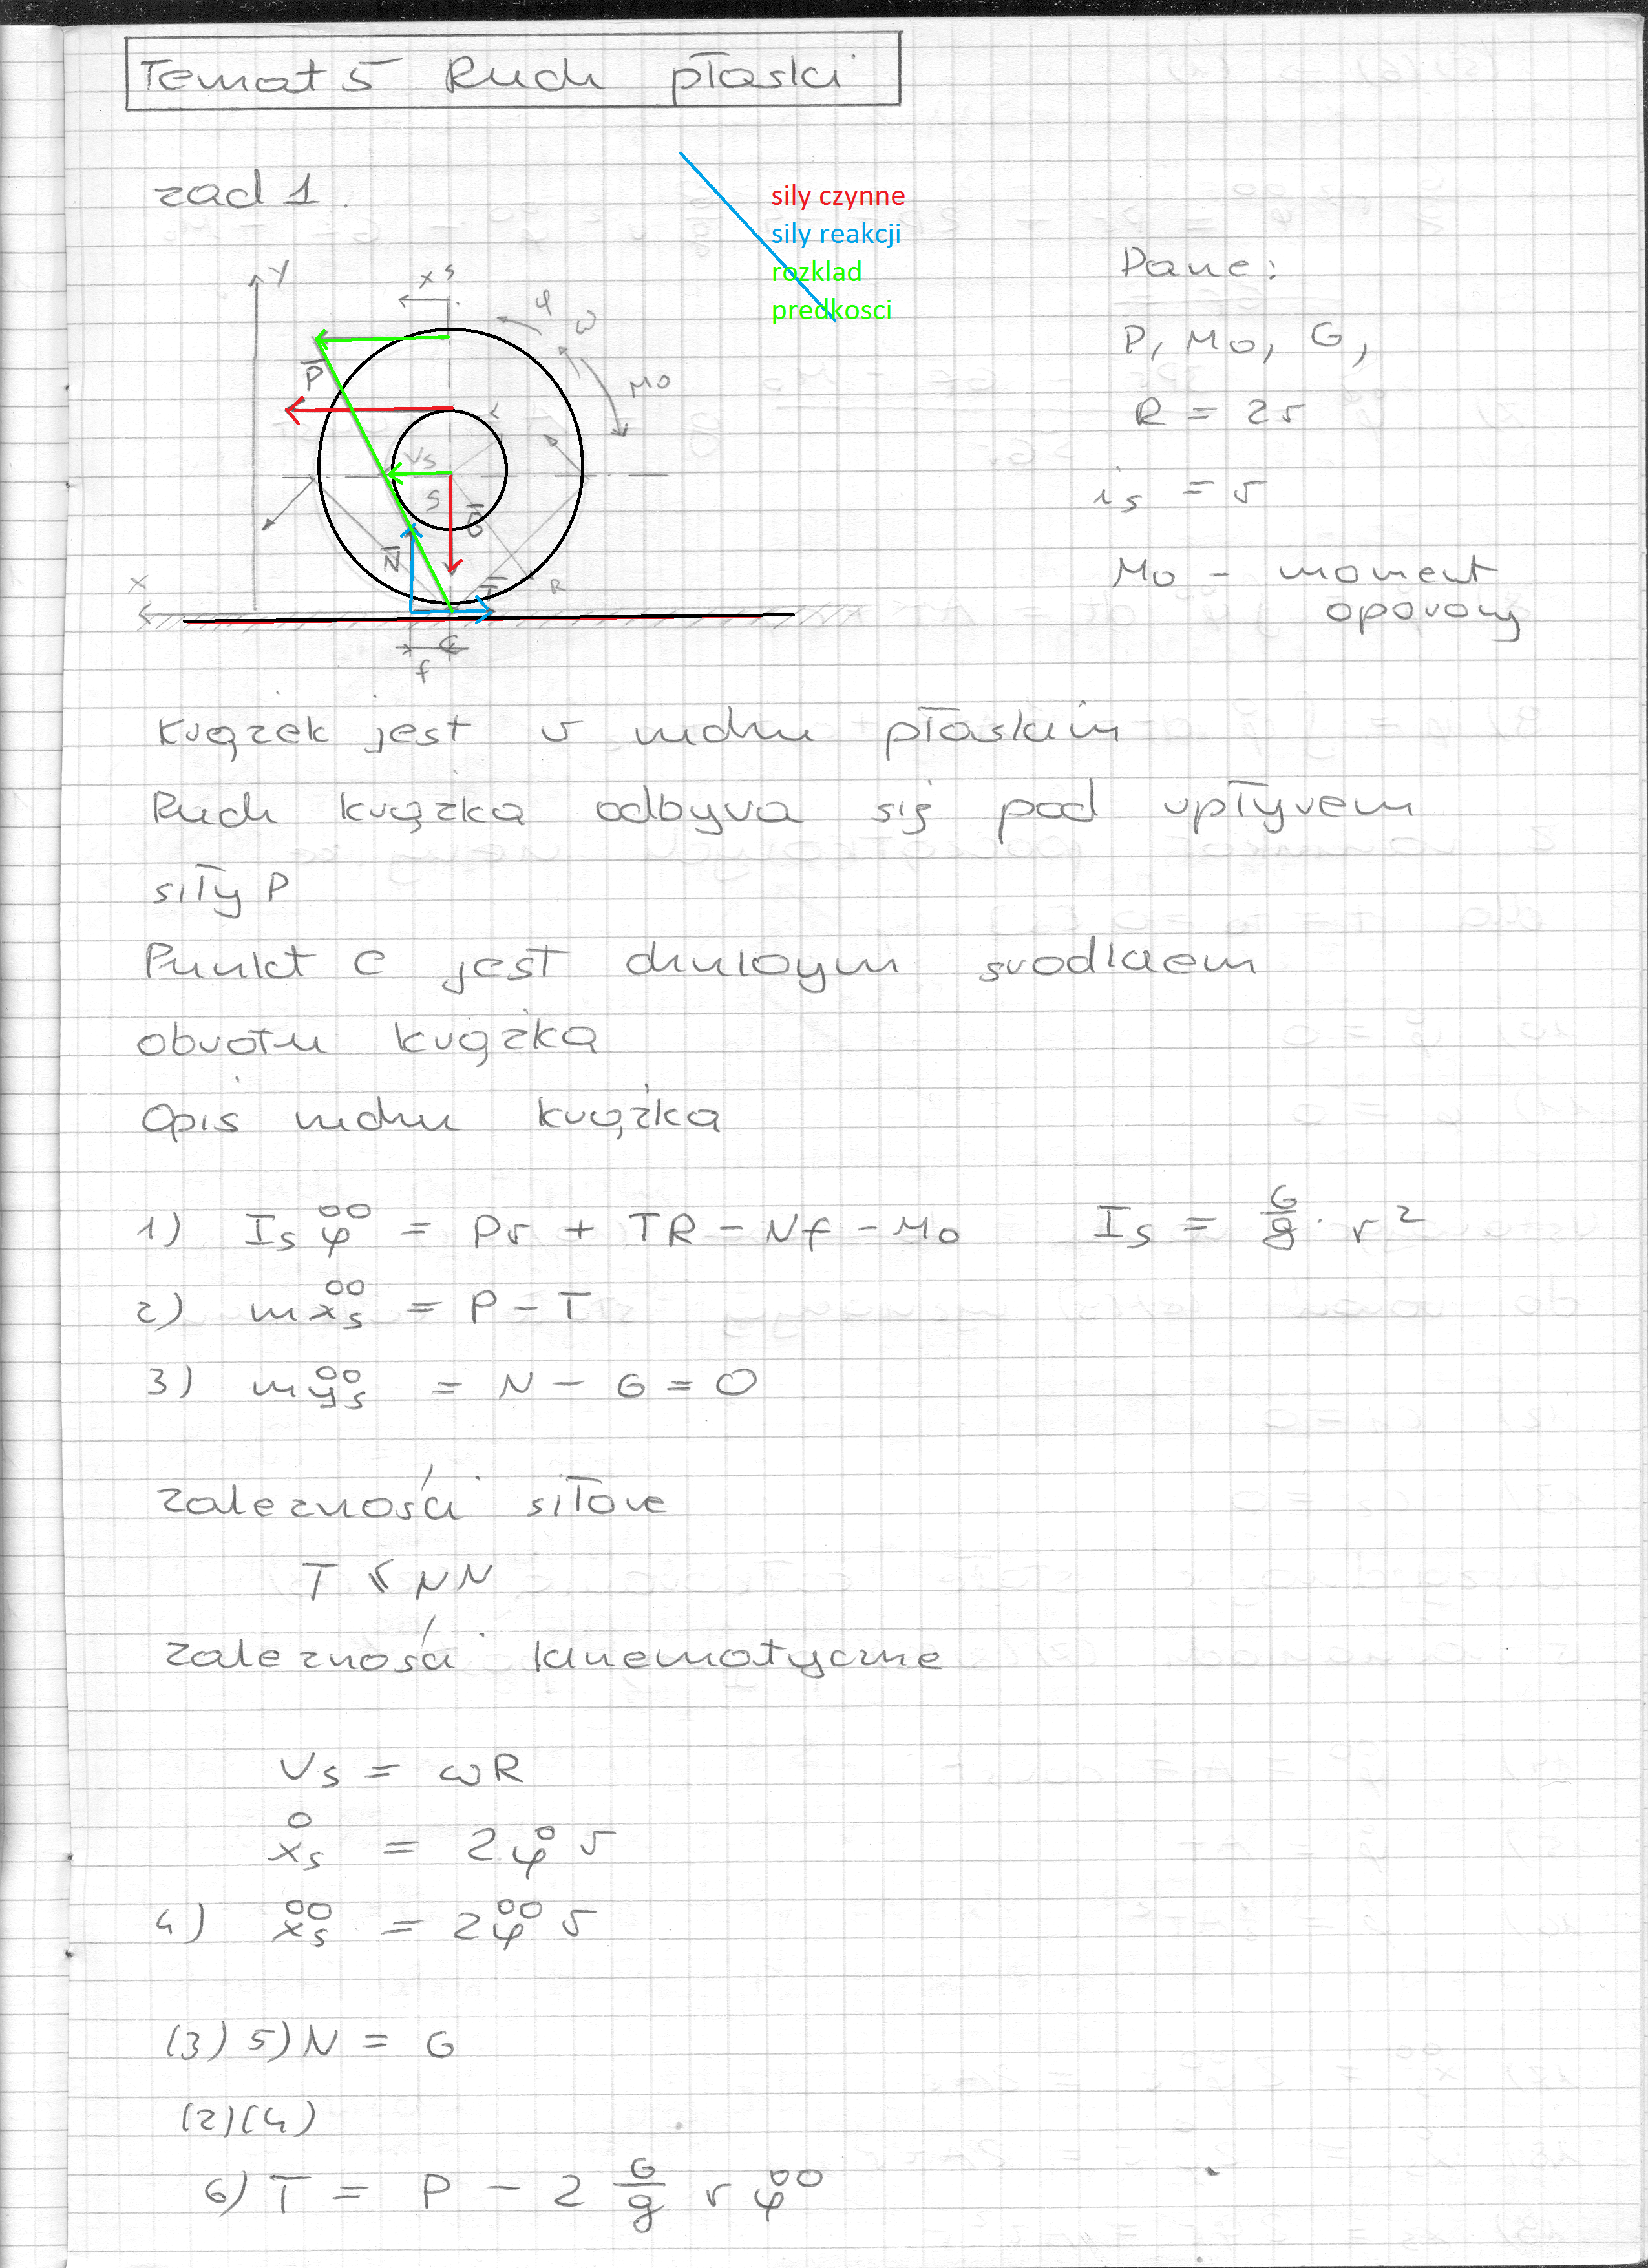 Temat 5 Ruch płaski
zad 1.
sily czynne
sily reakcji
rozklad
predkosci
Dane:
P, M0, G,
R = 2r
is = r
M0 - moment
oporowy
y
xs
φ
ω
M0
P
Vs
S
G
N
T
R
x
C
f
Krążek jest w ruchu płaskim
Ruch krążka odbywa się pod wpływem
siły P
Punkt C jest chwilowym środkiem
obrotu krążka
Opis ruchu krążka
1) Is φ̈ = Pr + TR - Nf - M0    Is = G/g · r²
2) mẍs = P - T
3) mÿs = N - G = 0
zależności siłowe
T ≤ μN
zależności kinematyczne
Vs = ωR
ẋs = 2φ̇ r
4) ẍs = 2φ̈ r
(3) 5) N = G
(2)(4)
6) T = P - 2 G/g r φ̈